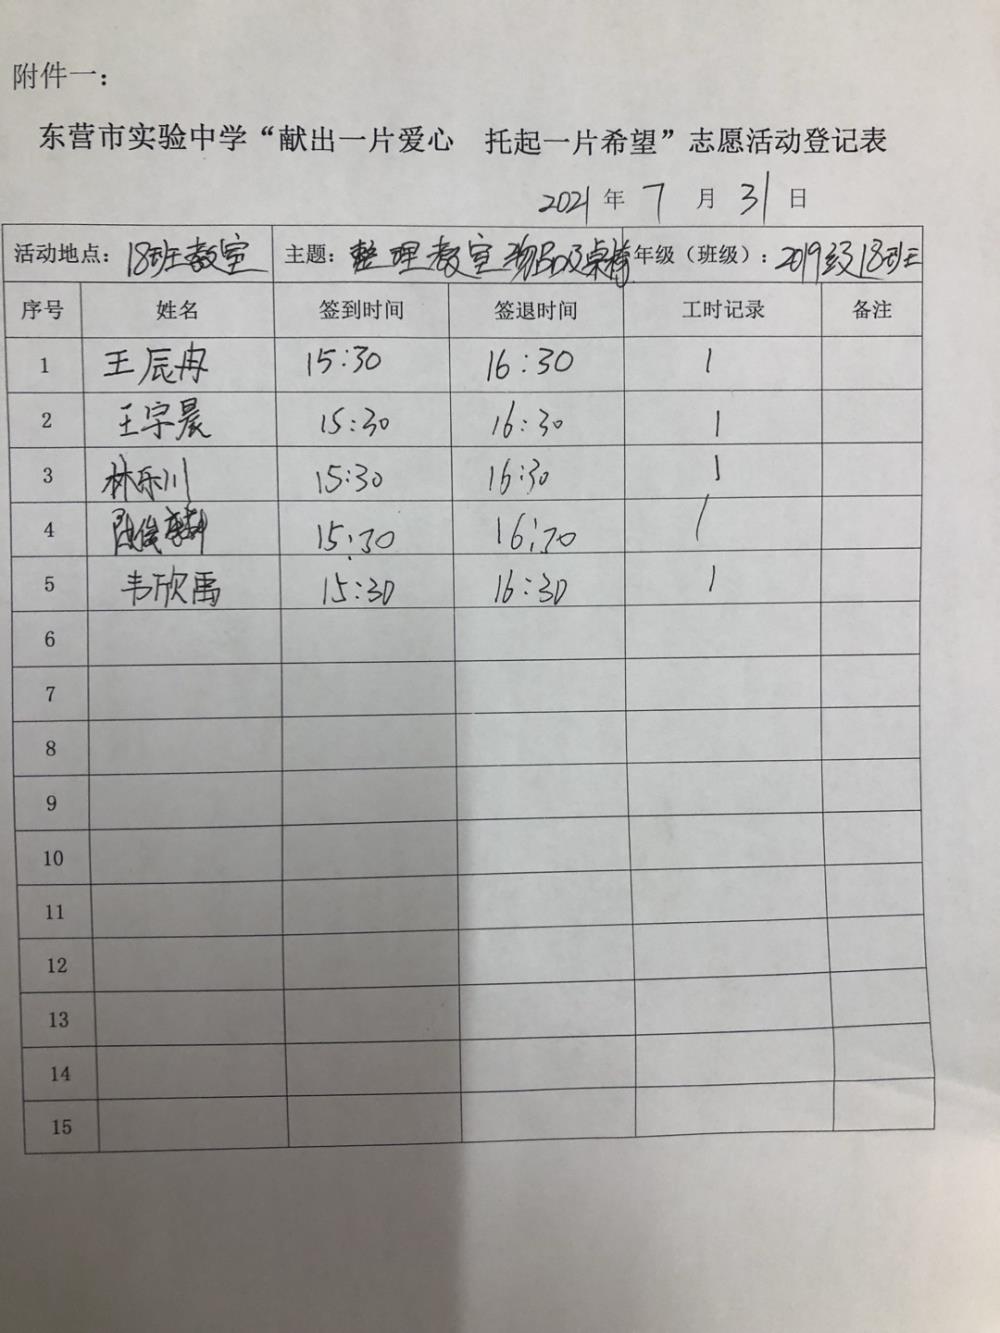 附件一：
东营市实验中学“献出一片爱心 托起一片希望”志愿活动登记表
2021年 7 月 31 日
活动地点：18班教室 主题：整理教室物品及桌椅 年级（班级）：2019级18班
序号 姓名 签到时间 签退时间 工时记录 备注
1 王辰冉 15:30 16:30 1
2 王宇晨 15:30 16:30 1
3 林乐川 15:30 16:30 1
4 15:30 16:30 1
5 韦欣禹 15:30 16:30 1
6
7
8
9
10
11
12
13
14
15